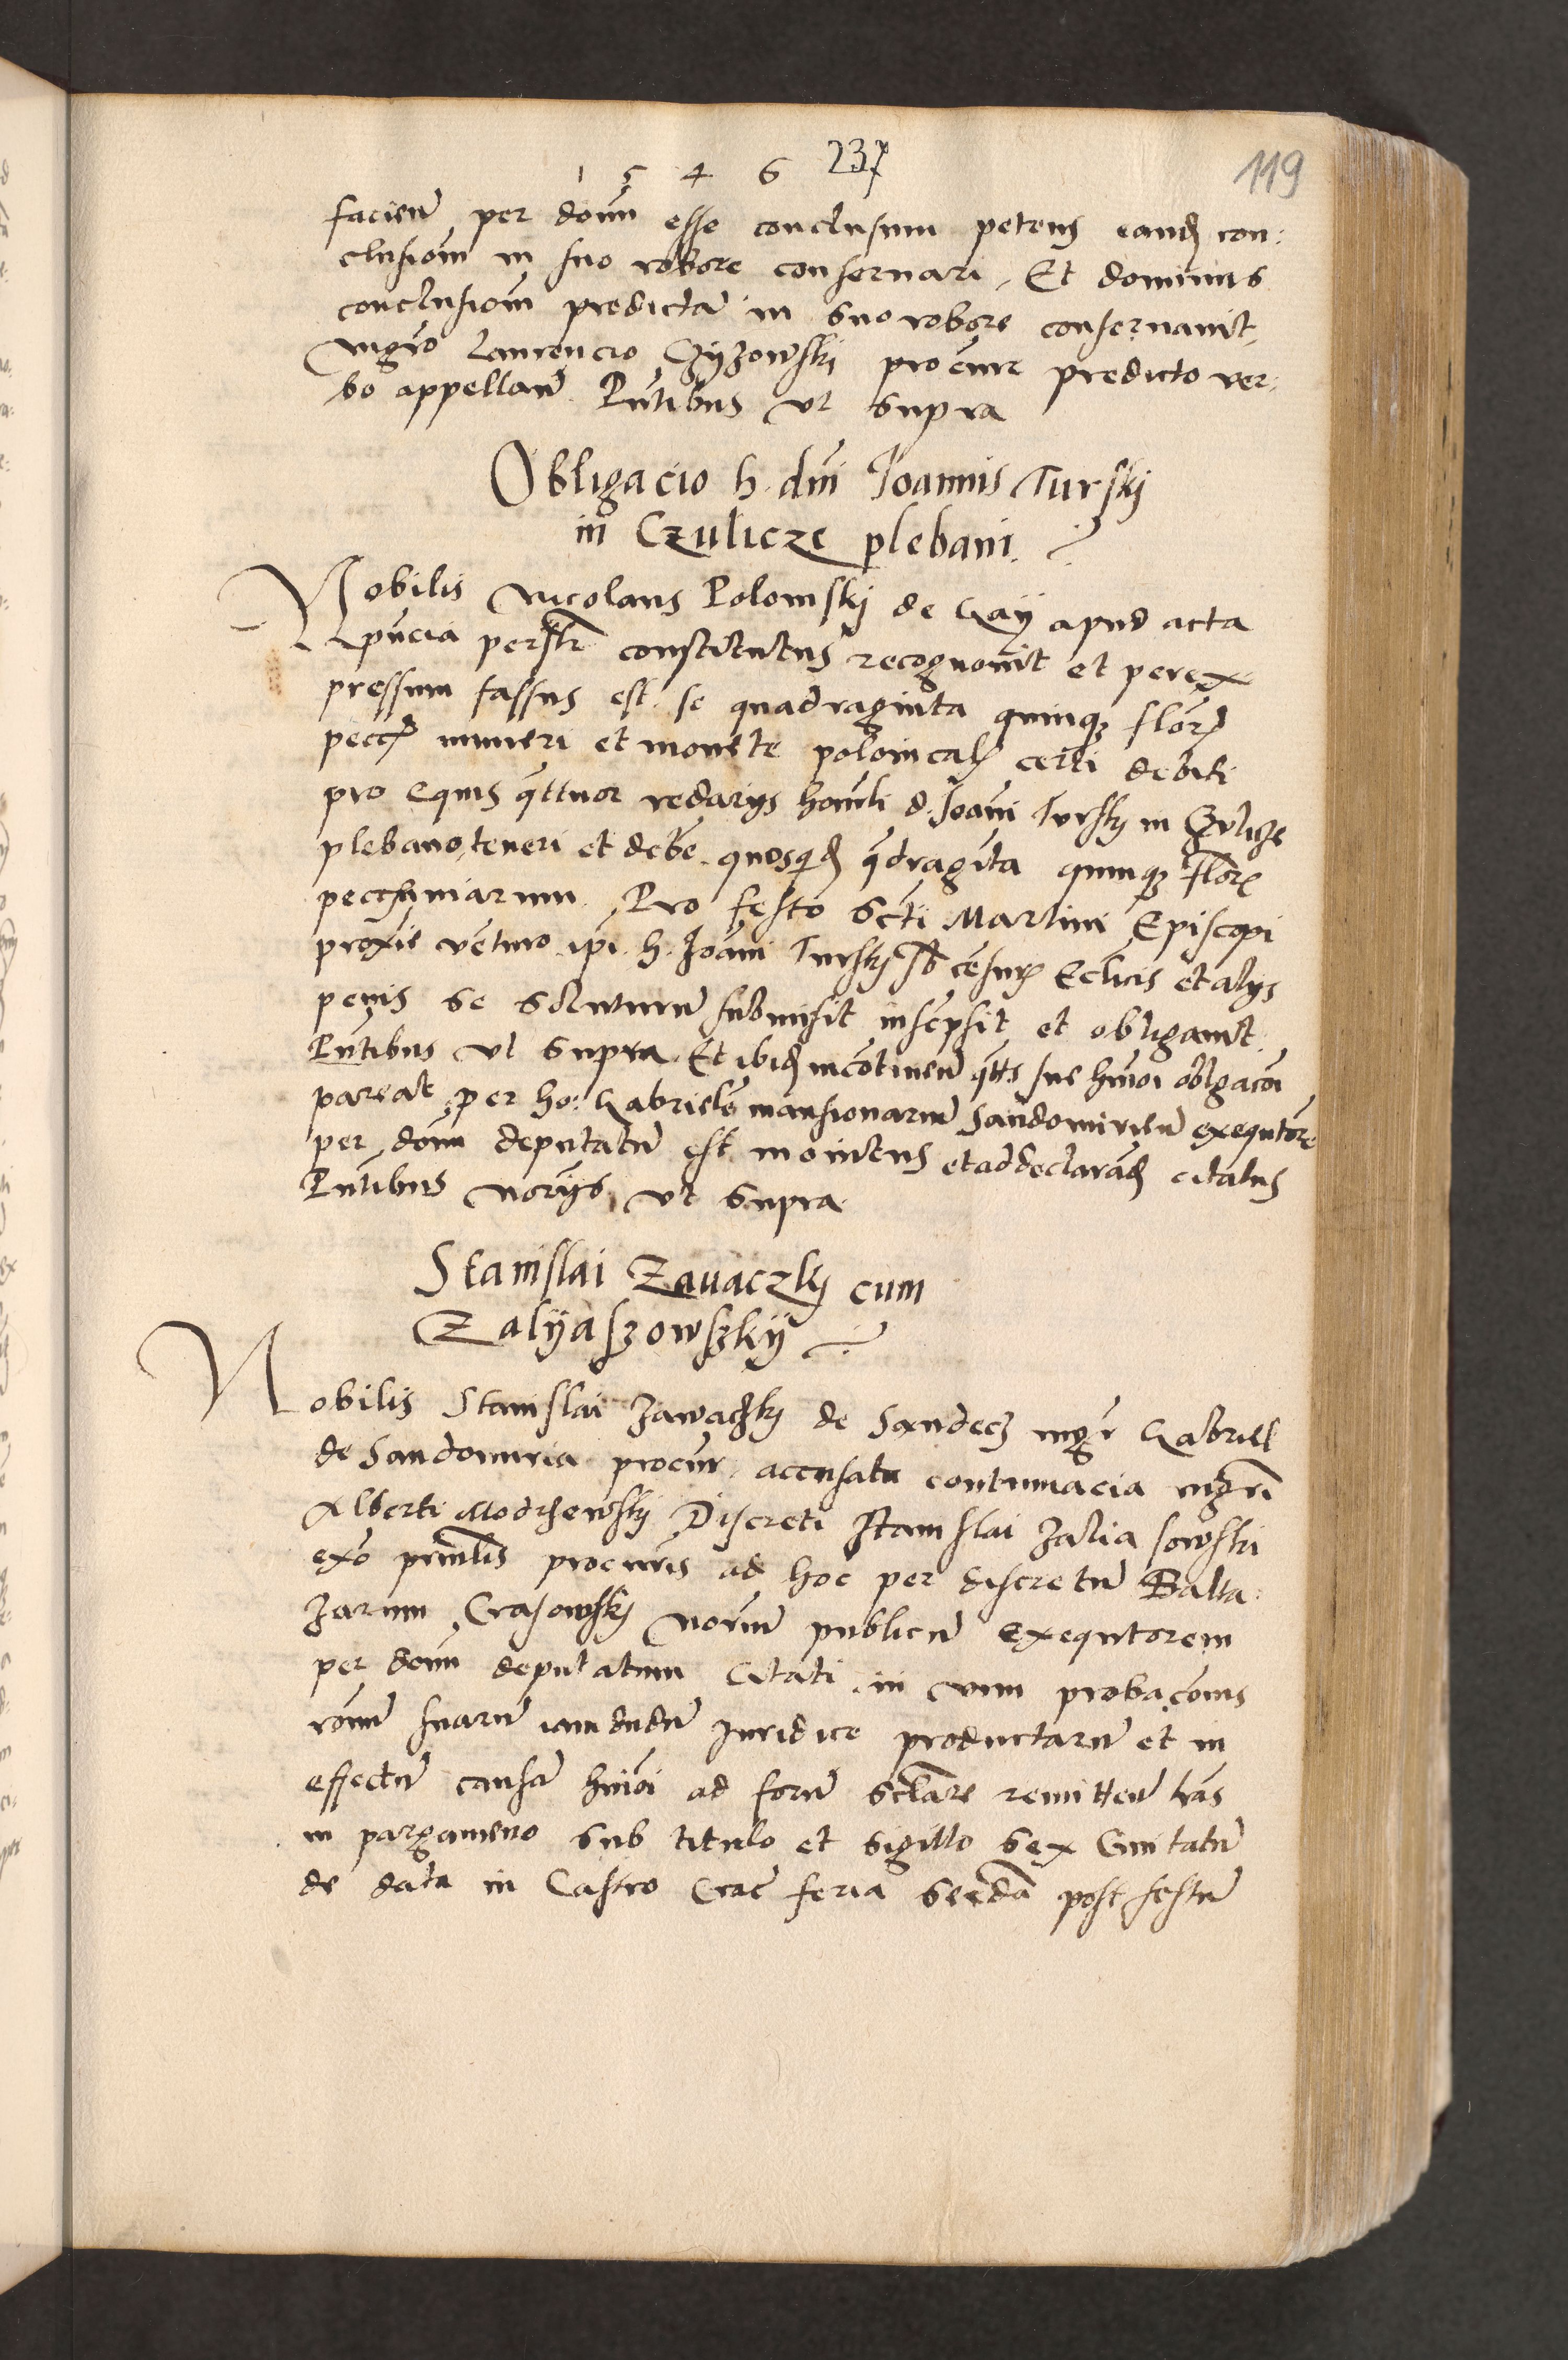 1 5 4 6 237
119
facien̄ per dom̄ esse conclusum petens eand con:
clusiom̄ in suo robore conseruari, Et dominus
conclusiom̄ predictā in suo robore conseruauit,
mgro Laurencio Czyzowski procure predicto ver:
bo appellan̄. Pntibus vt supra
Obligacio h. dni Joannis Turskj
in Czulicze plebani.
Nobilis Nicolaus Polomskj de Gay apud acta
pn̄cia perslr constitutus recognouit et per ex
pressum fassus est se quadraginta quinq flor
pecc numeri et monete polonical certi debiti
pro equis qttuor redarijs honli d. Joani Tursky in Czulicze
plebano, teneri et debe. quosqd qdraginta quinq flor
pecchuniarum. Pro festo Scti Martini Episcopi
proxie venturo ipi. h. Joani Tursky sb censur Ecclicis et alijs
penis se soluturū submisit inscripsit et obligauit.
Pntibus vt supra. Et ibid incontinen̄ qtts sue hmōi obligacōi
pareat per ho: Gabrielē mansionariū Sandomirien̄ exequtore
per dom̄ deputatū est monitus et ad declarād citatus
Pntibus norijs vt supra
Stanislai Zauaczky cum
Zalyaszowszkij
Nobilis Stanislai Zawaczky de Sandecz mgr Gabriell
de Sandomiria procur. accusata contumacia mgri
Alberti Modrzewsky Discreti Stanislai Zalia sowski
exo prncilis procuris ad hoc per discretū Balta
zarum Crasowsky norium publicū exequtorem
per dom̄ deputatum citati. in vim probacōnis
ronū suarū iamdudū Juridice productarū et in
effectū causā hmōi ad forū sclare remitten̄ lras
in pargameno sub titulo et sigillo sex Ciuitatū
de data in Castro Crac feria secdā post festū